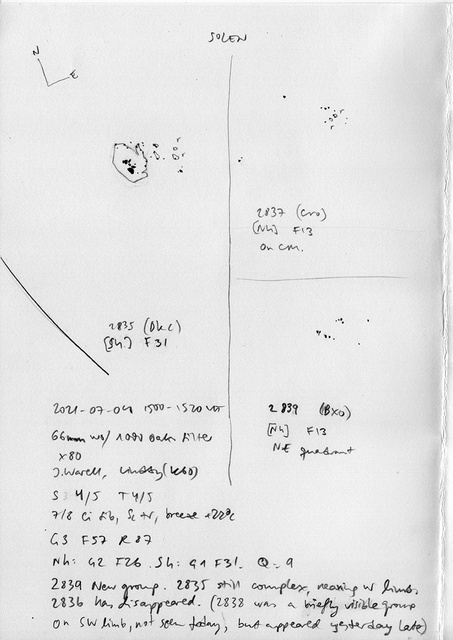 SOLEN
N
E
2837 (Cro)
[Nh] F13
on CM.
2835 (Dkc)
[Sh.] F31
2021-07-04 1500-1520 UT
2839 (BXO)
[Nh] F13
NE quadrant
66mm w/ filter
x80
J. Warell,
S 4/5 T 4/5
7/8 Ci fib, Sc tr, breeze +22°C
G3 F57 R87
Nh: G2 F26. Sh: G1 F31. Q=9
2839 New group. 2835 still complex, nearing W limb.
2836 has disappeared. (2838 was a briefly visible group
on SW limb, not seen today, but appeared yesterday late)